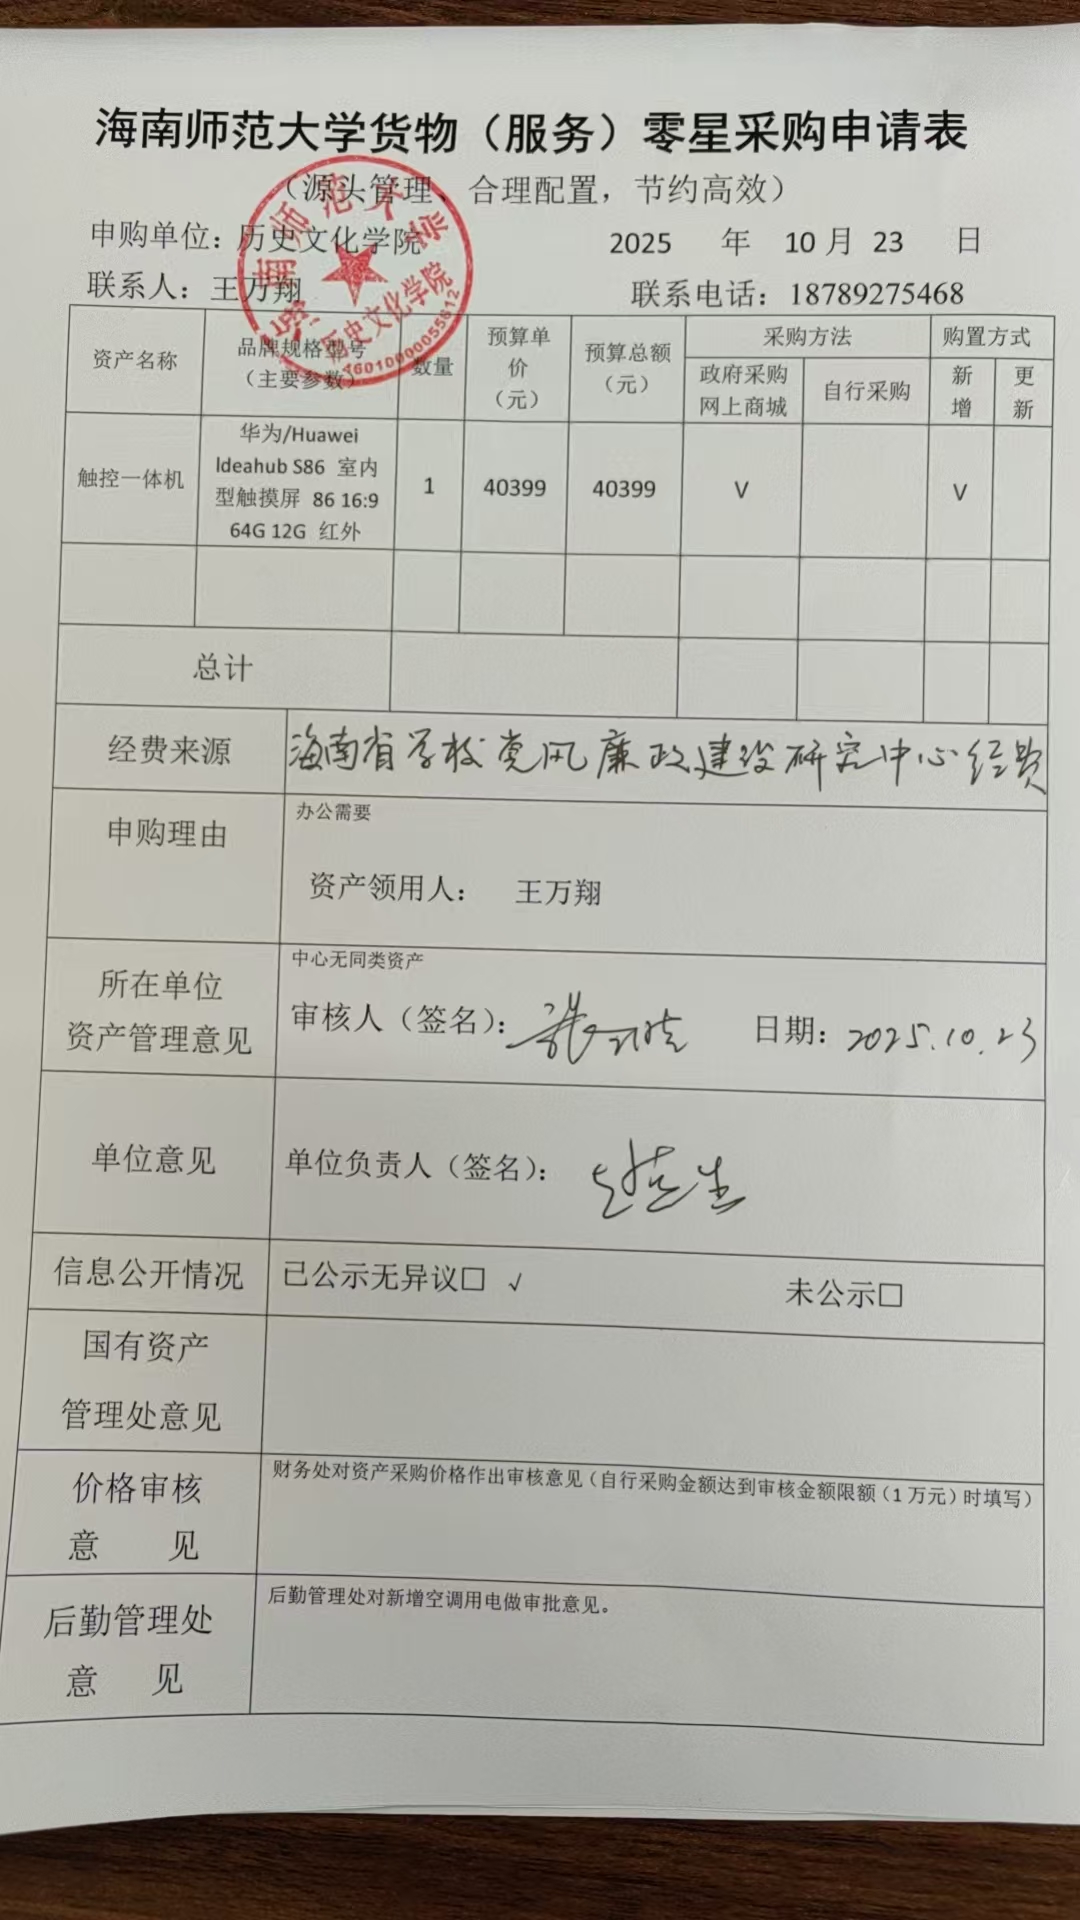 海南师范大学货物（服务）零星采购申请表
（源头管理、合理配置，节约高效）
申购单位：历史文化学院 2025 年 10 月 23 日
联系人：王万翔 联系电话：18789275468
海南师范大学
历史文化学院
资产名称 品牌规格型号（主要参数） 数量 预算单价（元） 预算总额（元） 采购方法 购置方式
政府采购网上商城 自行采购 新增 更新
触控一体机 华为/Huawei IdeaHub S86 室内型触摸屏 86 16:9 64G 12G 红外 1 40399 40399 V V
总计
经费来源 海南省学校党风廉政建设研究中心经费
申购理由 办公需要
资产领用人： 王万翔
所在单位资产管理意见 中心无同类资产
审核人（签名）： 日期：2025.10.23
单位意见 单位负责人（签名）：
信息公开情况 已公示无异议☐ √ 未公示☐
国有资产管理处意见
价格审核意 见 财务处对资产采购价格作出审核意见（自行采购金额达到审核金额限额（1 万元）时填写）
后勤管理处意 见 后勤管理处对新增空调用电做审批意见。